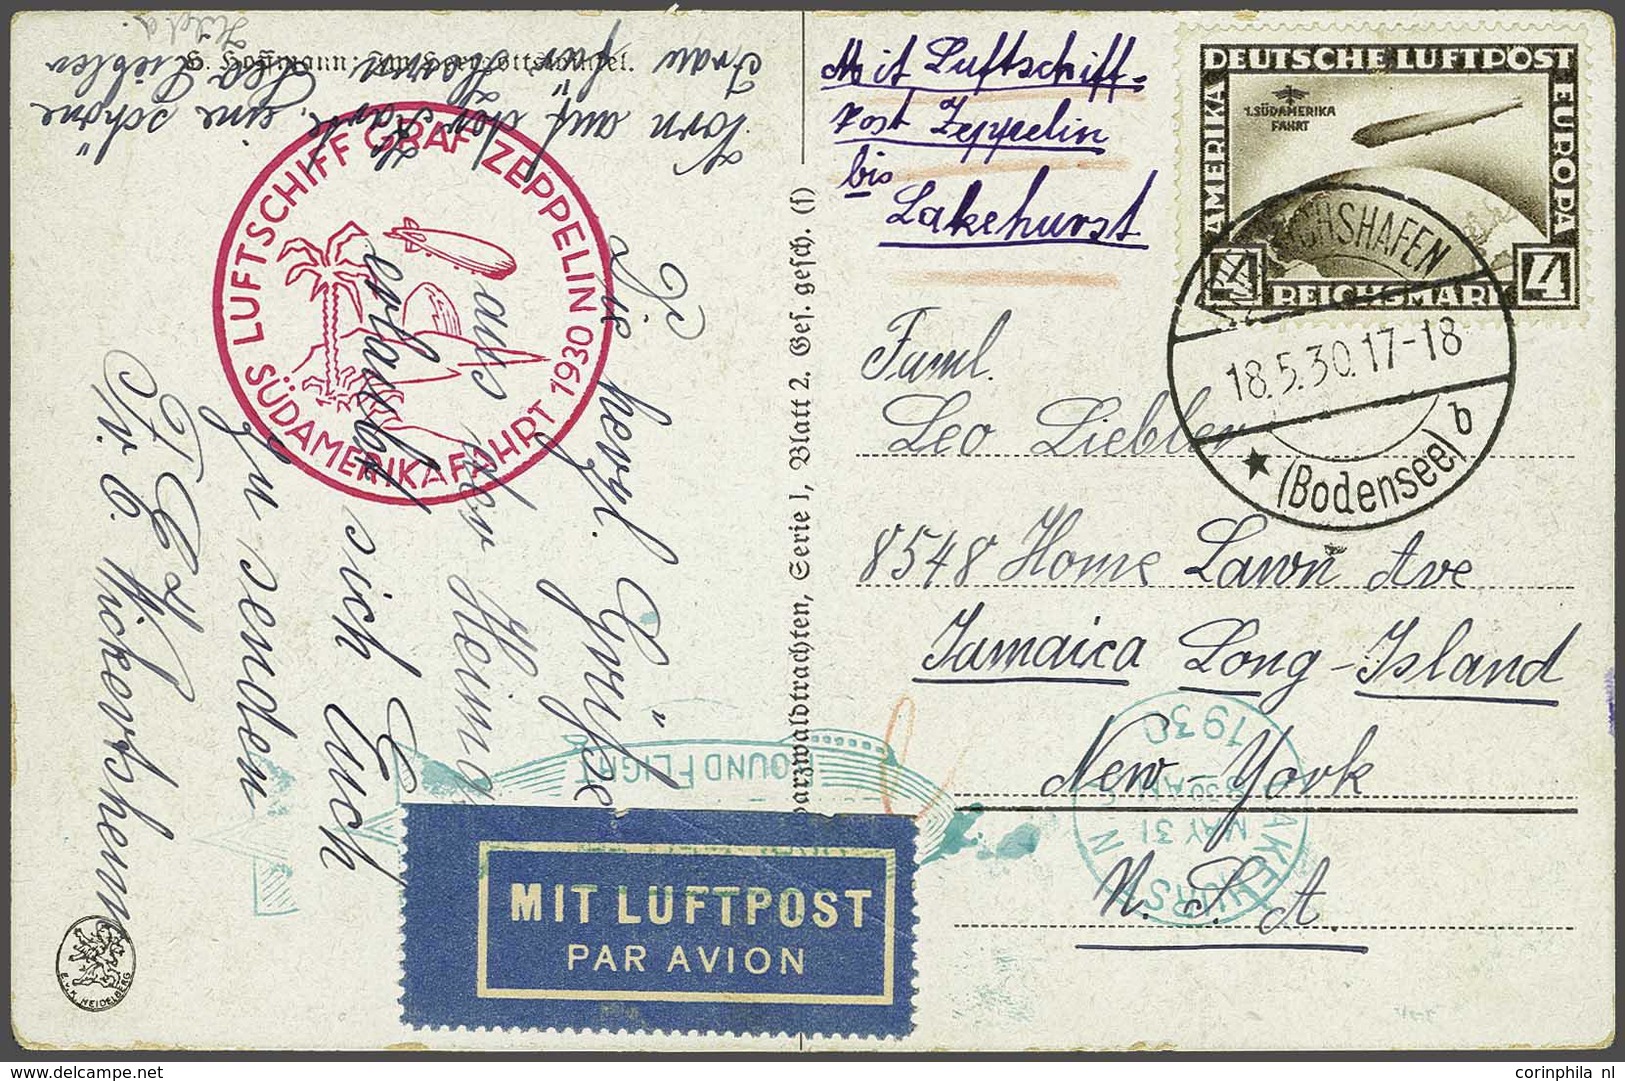 G. Hoffmann:
Mit Luftschiff-
Post Zeppelin
bis
Lakehurst
DEUTSCHE LUFTPOST
AMERIKA
EUROPA
1. SÜDAMERIKA
FAHRT
4
REICHSMARK
4
18.5.30.17-18
★ (Bodensee) b
Faml.
Leo Liebler
8548 Home Lawn Ave
Jamaica Long-Island
New-York
N. S. A
LUFTSCHIFF GRAF ZEPPELIN
SÜDAMERIKAFAHRT 1930
Vorn auf der Karte, eine schöne
Frau für Herrn Leo Liebler
Die herzl. Grüße
aus der Heimat
erlaubt sich Euch
zu senden
Serie 1, Blatt 2. Ges. gesch. (f)
ROUND FLIGHT
LAKEHURST N
MAY 31
1930
MIT LUFTPOST
PAR AVION
E.v.K. HEIDELBERG
corinphila nl